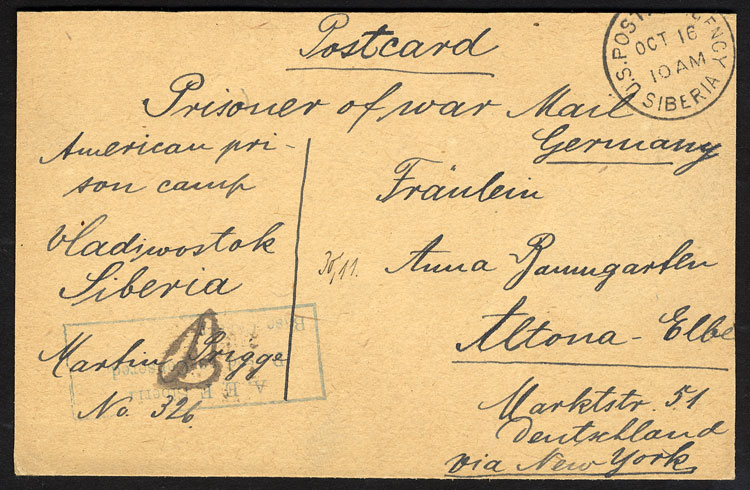 Postcard
U.S. POSTAL AGENCY
OCT 16
10 AM
SIBERIA
Prisoner of war Mail
Germany
American pri-
son camp
Vladiwostok
Siberia
Martin Prigge
No. 326
30/11.
Fräulein
Anna Baumgarten
Altona-Elbe
Marktstr. 51
Deutschland
via New York
A. E. F. Siberia
Censored
Base